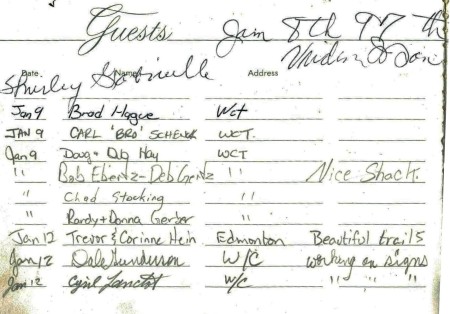 Guests Jan 8th 97 th
Date Name Address
Shirley
Jan 9 Brad Hague Wct
JAN 9 CARL 'BRO' SCHENK WCT.
Jan 9 Doug + Deb Hay WCT
" Bob Ebertz - Deb Gertz " Nice Shack.
" Chad Stocking "
" Randy + Donna Gerber "
Jan 12 Trevor & Corinne Hein Edmonton Beautiful trails
Jan 12 Dale Gunderson W/C working on signs
Jan 12 Cyril Lanctot W/C " " "